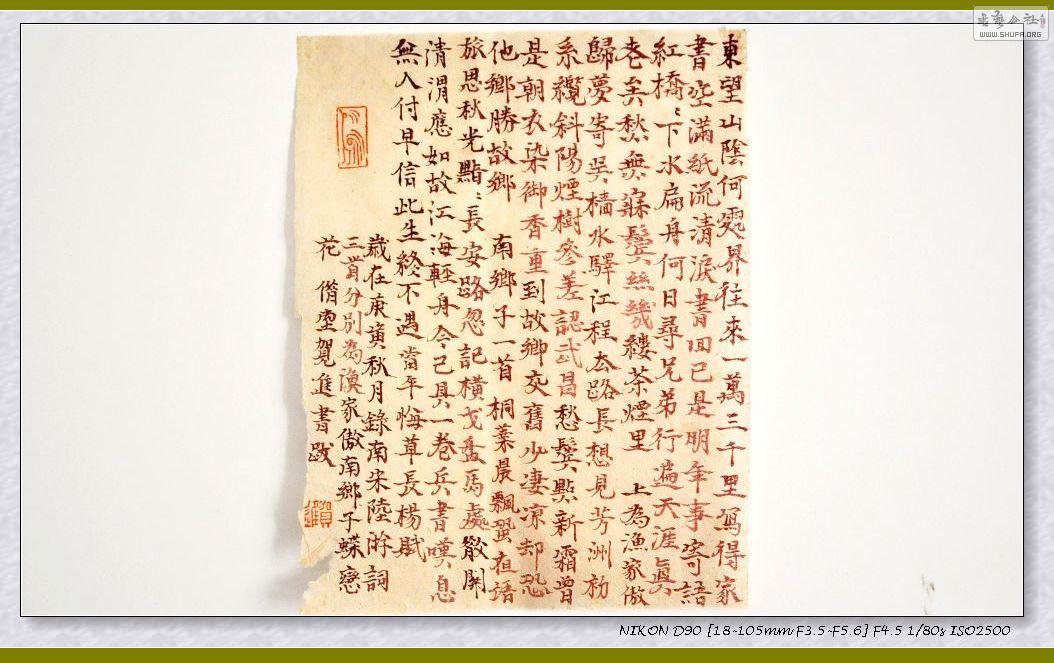 東望山陰何處是往來一萬三千里寫得家
書空滿紙流清淚書回已是明年事寄語
紅橋〻下水扁舟何日尋兄弟行遍天涯真
老矣愁無寐鬢絲幾縷茶煙里 上為漁家傲
歸夢寄吳檣水驛江程去路長想見芳洲初
系纜斜陽煙樹參差認武昌愁鬢點新霜曾
是朝衣染御香重到故鄉交舊少淒涼却恐
他鄉勝故鄉 南鄉子一首 桐葉晨飄蛩夜語
旅思秋光黯〻長安路忽記橫戈盤馬處散關
清渭應如故江海輕舟今已具一卷兵書嘆息
無人付早信此生終不遇當年悔草長楊賦
歲在庚寅秋月錄南宋陸游詞
三首分別為漁家傲南鄉子蝶戀
花 堂賀進書跋
WWW.SHUFA.ORG
NIKON D90 [18-105mm F3.5-F5.6] F4.5 1/80s ISO2500